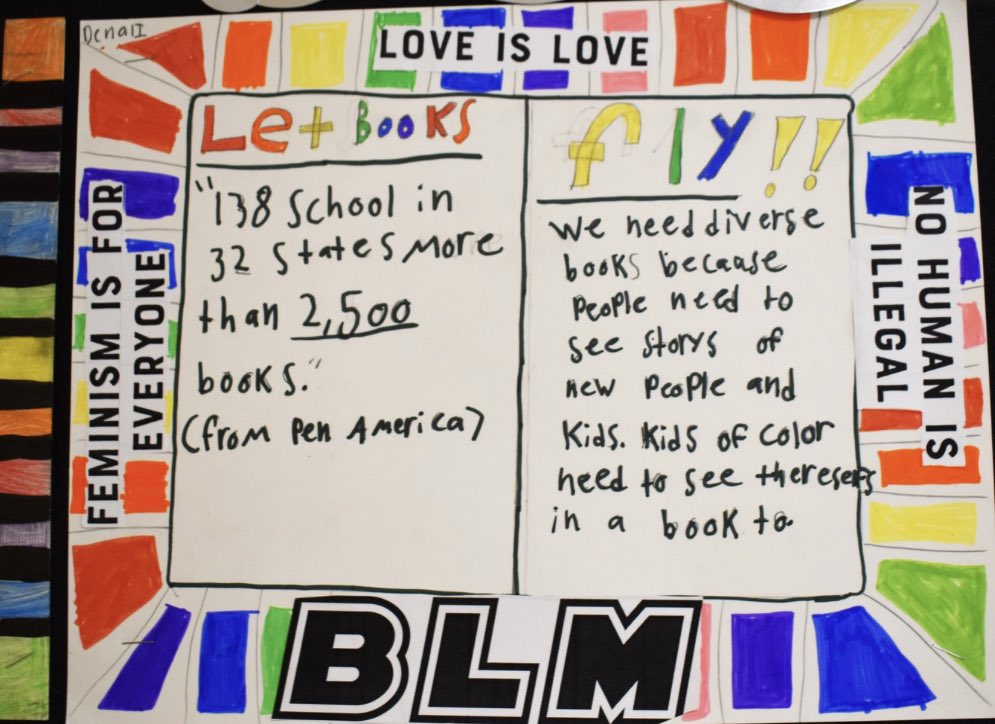 DenalI
LOVE IS LOVE
FEMINISM IS FOR
EVERYONE
Let BOOKS
"138 School in
32 States more
than 2,500
books."
(from Pen America)
fly!!
We need diverse
books because
People need to
see storys of
new People and
Kids. Kids of color
need to see theresefs
in a book to.
NO HUMAN IS
ILLEGAL
BLM